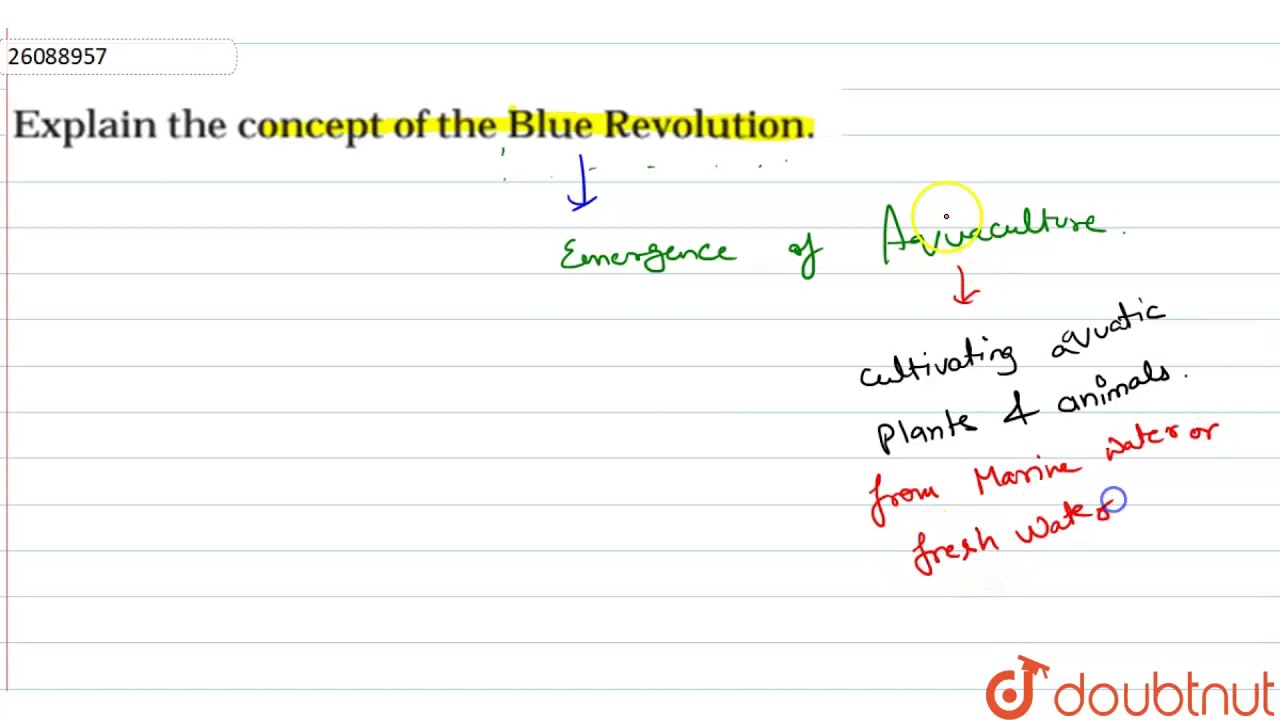 26088957
Explain the concept of the Blue Revolution.
Emergence of Aquaculture.
cultivating aquatic
plants & animals.
from Marine water or
fresh water
doubtnut